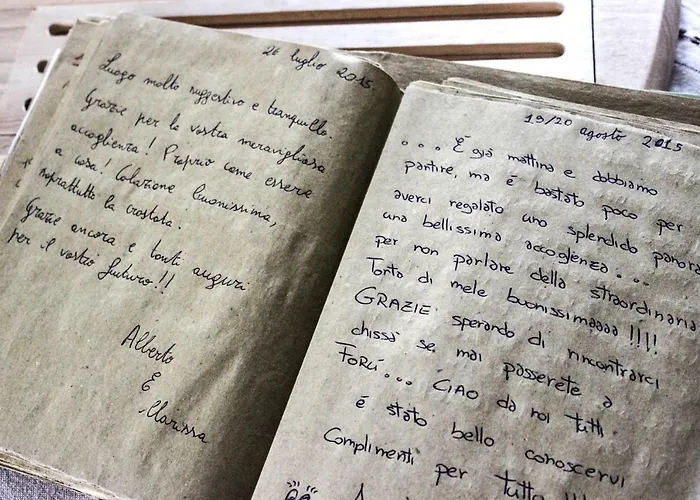 26 luglio 2015
Luogo molto suggestivo e tranquillo.
Grazie per la vostra meravigliosa
accoglienza! Proprio come essere
a casa! Colazione buonissima,
soprattutto la crostata.
Grazie ancora e tanti auguri
per il vostro futuro!!
Alberto
E
Clarissa
19/20 agosto 2015
... È già mattina e dobbiamo
partire, ma è bastato poco per
averci regalato uno splendido panora
una bellissima accoglienza...
per non parlare della straordinaria
Torta di mele buonissimaaaa !!!!
GRAZIE sperando di rincontrarci
chissà se mai passerete a
Forlì... CIAO da noi tutti
é stato bello conoscervi
Complimenti per